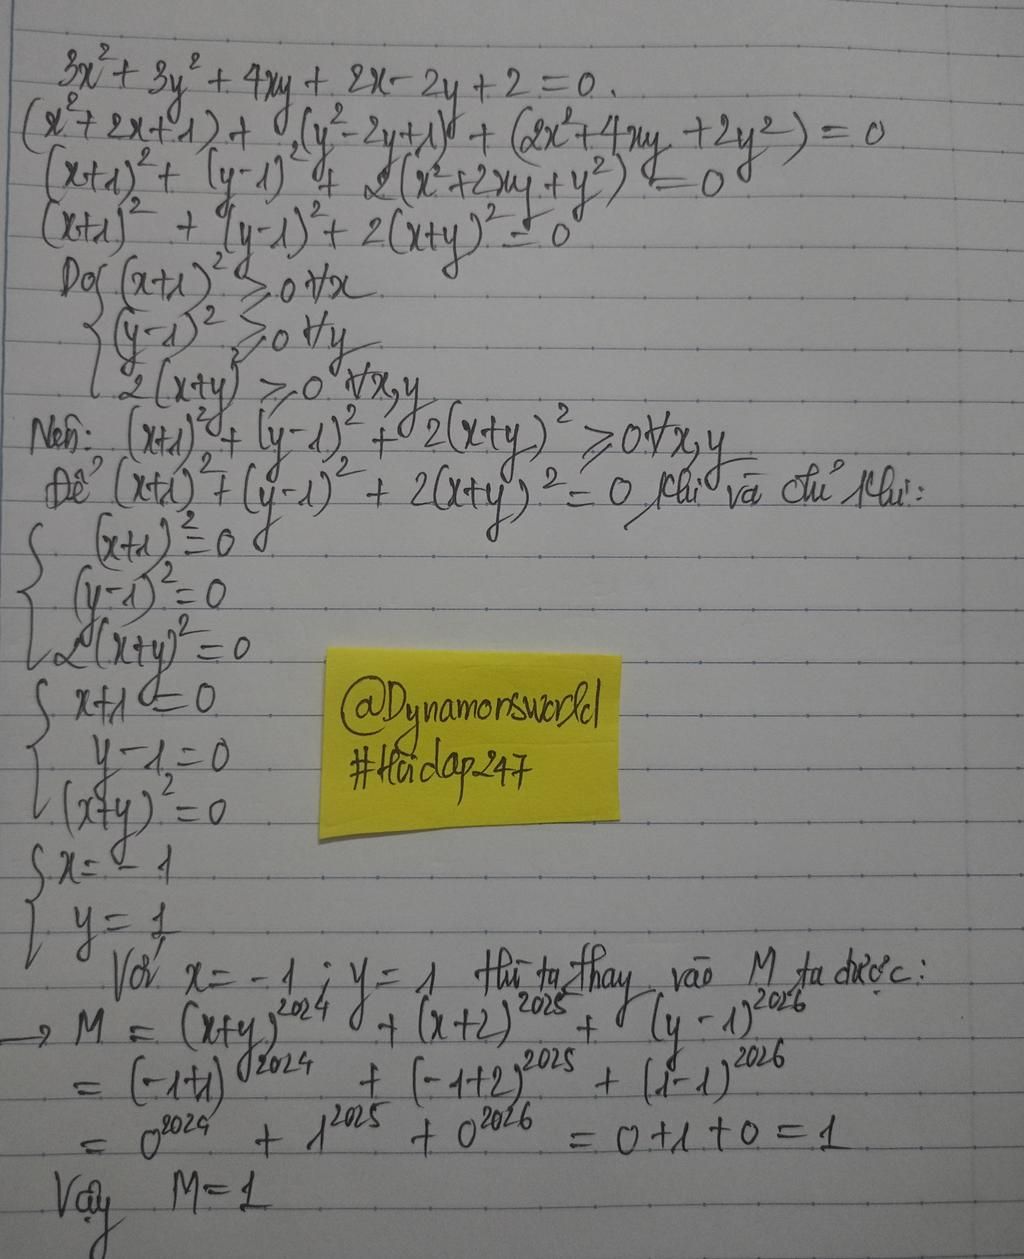 3x² + 3y² + 4xy + 2x - 2y + 2 = 0.
(x² + 2x + 1) + (y² - 2y + 1) + (2x² + 4xy + 2y²) = 0
(x+1)² + (y-1)² + 2(x² + 2xy + y²) = 0
(x+1)² + (y-1)² + 2(x+y)² = 0
Do { (x+1)² ≥ 0 ∀x
(y-1)² ≥ 0 ∀y
2(x+y)² ≥ 0 ∀x,y
Nên: (x+1)² + (y-1)² + 2(x+y)² ≥ 0 ∀x,y
Để (x+1)² + (y-1)² + 2(x+y)² = 0 khi và chỉ khi:
{ (x+1)² = 0
(y-1)² = 0
2(x+y)² = 0
{ x+1 = 0
y - 1 = 0
(x+y)² = 0
{ x = - 1
y = 1
@Dynamonsworld
#Hoidap247
Với x = -1 ; y = 1 thì ta thay vào M ta được:
→ M = (x+y)²⁰²⁴ + (x+2)²⁰²⁵ + (y-1)²⁰²⁶
= (-1+1)²⁰²⁴ + (-1+2)²⁰²⁵ + (1-1)²⁰²⁶
= 0²⁰²⁴ + 1²⁰²⁵ + 0²⁰²⁶ = 0+1+0 = 1
Vậy M = 1